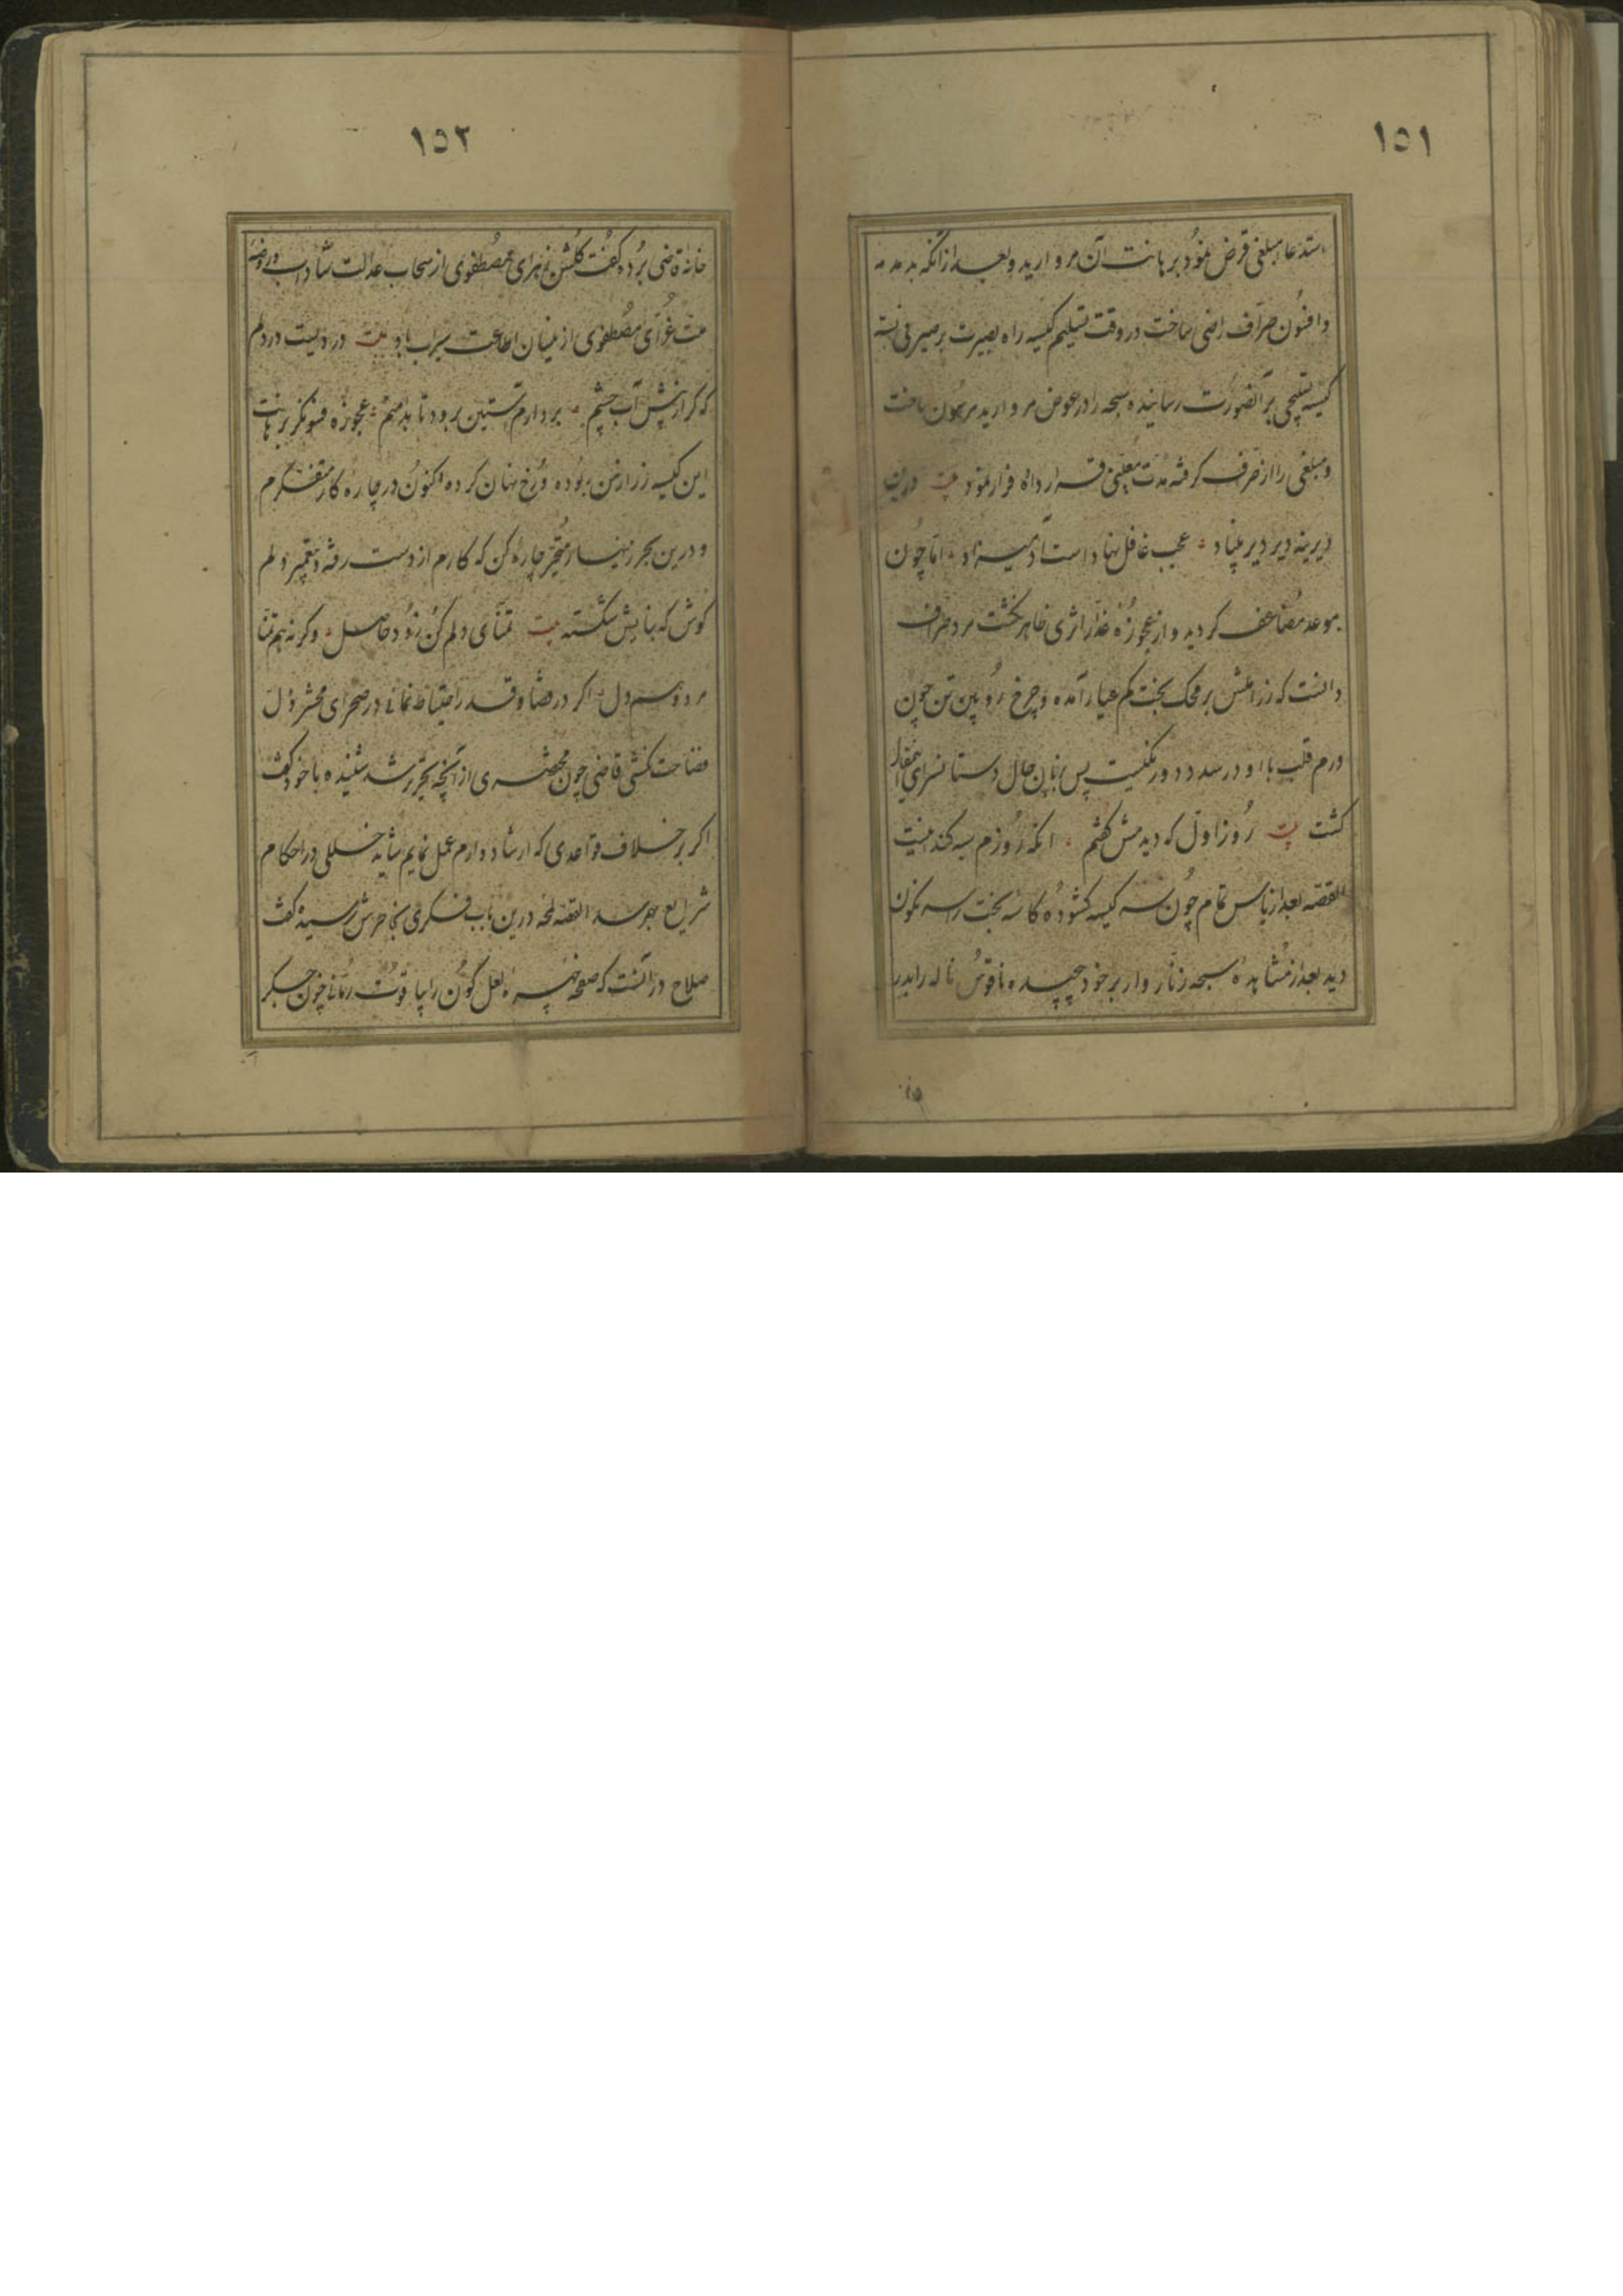 ١٥١
استدعاء مبلغی قرض نمود برهانت آن مروارید و بعد از آنکه بدمدمه
و افسون صراف راضی ساخت در وقت تسلیم کیسه راه بصیرت بر صیرفی بسته
کیسه تسبیحی بر آنصورت رسانیده سبحه را در عوض مروارید مرهون ساخت
و مبلغی را از صراف گرفته مدت معینی قرار داده فرار نمود بیت درین
دیرینه دیر دیر بنیاد عجب غافل نهاد است آدمیزاد اما چون
موعد مضاعف گردید و از عجوزه غدار اثری ظاهر نگشت مرد صراف
دانست که زر املش بر محک بخت کم عیار آمده و چرخ رویین تن چون
درم قلب با او در صدد دورنگیست پس بزبان حال دستانسرای مقال
گشت بیت روز اول که دیدمش گفتم آنکه روزم سیه کند اینست
القصه بعد از یاس تمام چون سر کیسه گشوده کاسه بخت را سرنگون
دید بعد از مشاهده سبحه زنار وار بر خود پیچیده ناقوس ناله را بدر
١٥٢
خانه قاضی برده گفت گلشن زهرای مصطفوی از سحاب عدالت شاداب و روضه
ملت غرای مصطفوی از نیسان اطاعت سیراب باد بیت دردیست در دلم
که گر از پیش آب چشم بردارم آستین برود تا بدامنم عجوزه فسونگر برهانت
این کیسه زر از من ربوده و رخ نهان کرده اکنون در چاره کار متفکرم
و درین بحر زینسار متحیر چاره کن که کارم از دست رفته و بتعمیر دلم
کوش که بنایش شکسته بیت تمنای دلم کن زود حاصل وگرنه هم تنا
مردو هم دل اگر در مضا و قدر احتیاط نمائی در صحرای محشر ذل
فضاحت کشی قاضی چون محضری از آنچه تحریر شد شنیده با خود گفت
اگر بر خلاف قواعدی که ارشاد دارم عمل نمایم شاید خللی در احکام
شرایع بهم رسد القصه لمحه درین باب فکری بخاطرش رسیده گفت
صلاح در آنست که صفحه چهره لعل گون را بیاقوت رمانی خون جگر